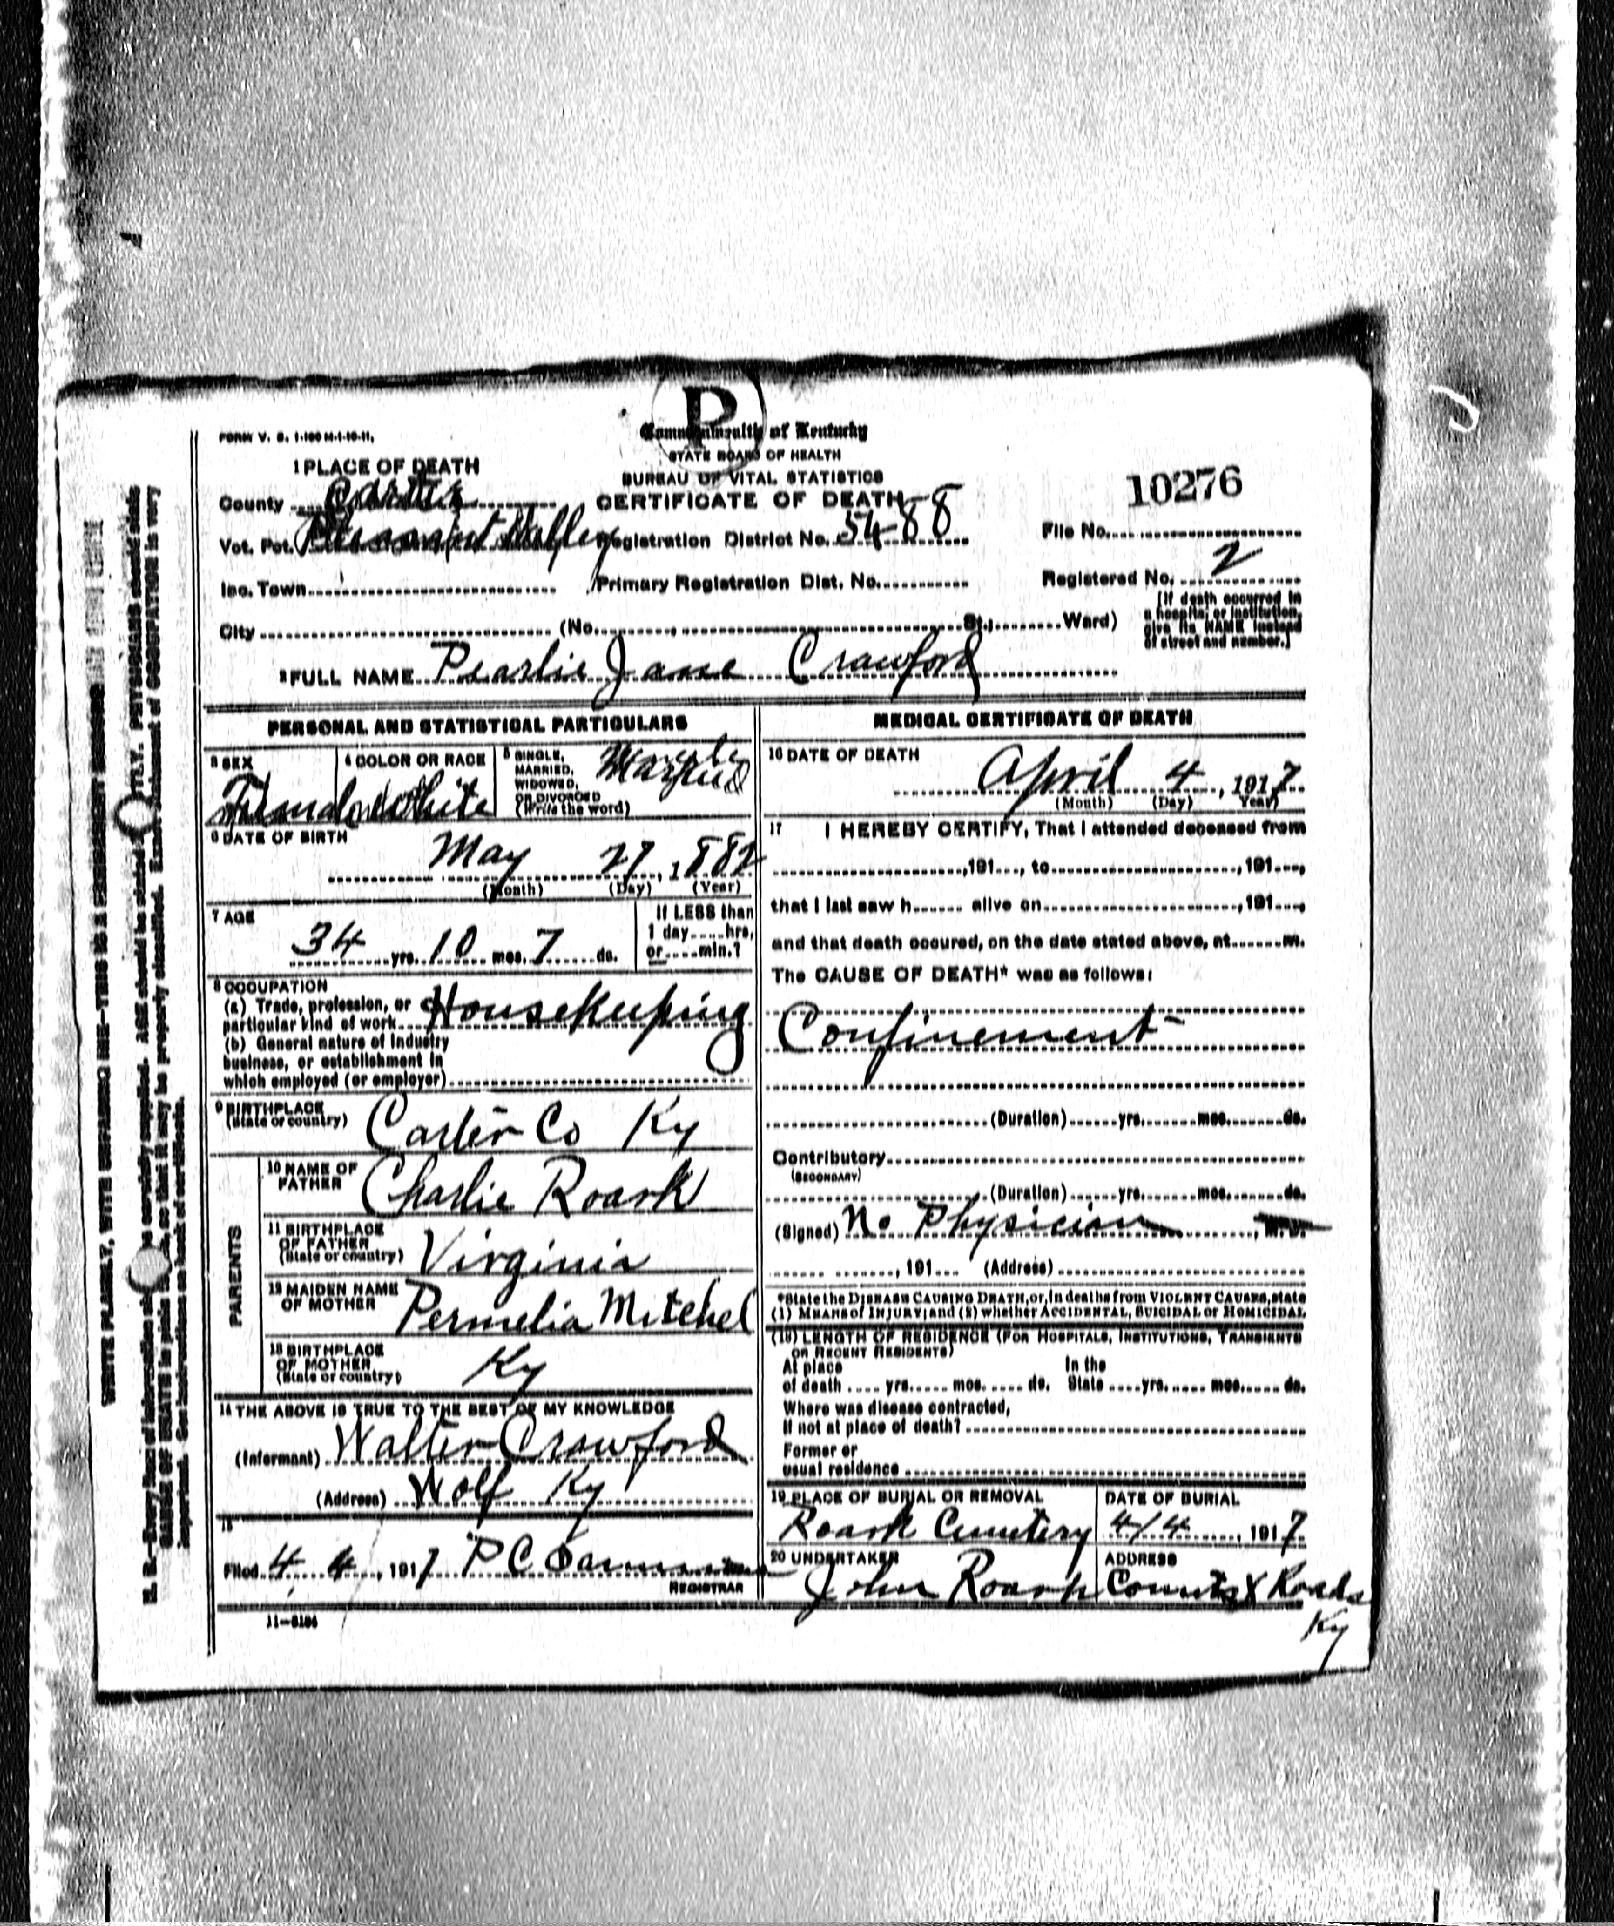 FORM V. S. 1-100 M-1-10-11.
P
Commonwealth of Kentucky
STATE BOARD OF HEALTH
BUREAU OF VITAL STATISTICS
CERTIFICATE OF DEATH
10276
1 PLACE OF DEATH
County Carter
Vot. Pct. Pleasant Valley Registration District No. 5488 File No.
Inc. Town Primary Registration Dist. No. Registered No. 2
City (No. , St., Ward)
(If death occurred in
a hospital or institution,
give its NAME instead
of street and number.)
2 FULL NAME Pearlie Jane Crawford
PERSONAL AND STATISTICAL PARTICULARS
3 SEX
Female
4 COLOR OR RACE
White
5 SINGLE,
MARRIED,
WIDOWED,
OR DIVORCED
(Write the word)
Married
6 DATE OF BIRTH
May 27, 1882
(Month) (Day) (Year)
7 AGE
34 yrs. 10 mos. 7 ds.
If LESS than
1 day hrs,
or min.?
8 OCCUPATION
(a) Trade, profession, or
particular kind of work Housekeeping
(b) General nature of Industry
business, or establishment in
which employed (or employer)
9 BIRTHPLACE
(State or country) Carter Co Ky
PARENTS
10 NAME OF
FATHER Charlie Roark
11 BIRTHPLACE
OF FATHER
(State or country) Virginia
12 MAIDEN NAME
OF MOTHER Permelia Mitchel
13 BIRTHPLACE
OF MOTHER
(State or country) Ky
14 THE ABOVE IS TRUE TO THE BEST OF MY KNOWLEDGE
(Informant) Walter Crawford
(Address) Wolf Ky
15
Filed 4 4, 1917 P C
REGISTRAR
11-6184
MEDICAL CERTIFICATE OF DEATH
16 DATE OF DEATH
April 4, 1917
(Month) (Day) Year)
17 I HEREBY CERTIFY, That I attended deceased from
, 191 , to , 191 ,
that I last saw h alive on , 191 ,
and that death occured, on the date stated above, at m.
The CAUSE OF DEATH* was as follows:
Confinement
(Duration) yrs. mos. ds.
Contributory
(SECONDARY)
(Duration) yrs. mos. ds.
(Signed) No Physician , M. D.
, 191 (Address)
*State the DISEASE CAUSING DEATH, or, in deaths from VIOLENT CAUSES, state
(1) MEANS of INJURY; and (2) whether ACCIDENTAL, SUICIDAL or HOMICIDAL
(18) LENGTH OF RESIDENCE (FOR HOSPITALS, INSTITUTIONS, TRANSIENTS
OR RECENT RESIDENTS)
At place In the
of death yrs. mos. ds. State yrs. mos. ds.
Where was disease contracted,
If not at place of death?
Former or
usual residence
19 PLACE OF BURIAL OR REMOVAL
Roark Cemetery
DATE OF BURIAL
4/4, 1917
20 UNDERTAKER
John Roark
ADDRESS
X Roads
Ky
WRITE PLAINLY, WITH UNFADING INK—THIS IS A PERMANENT RECORD
N. B.—Every item of information should be carefully supplied. AGE should be stated EXACTLY. PHYSICIANS should state
CAUSE OF DEATH in plain terms, so that it may be properly classified. Exact statement of OCCUPATION is very
important. See instructions on back of certificate.